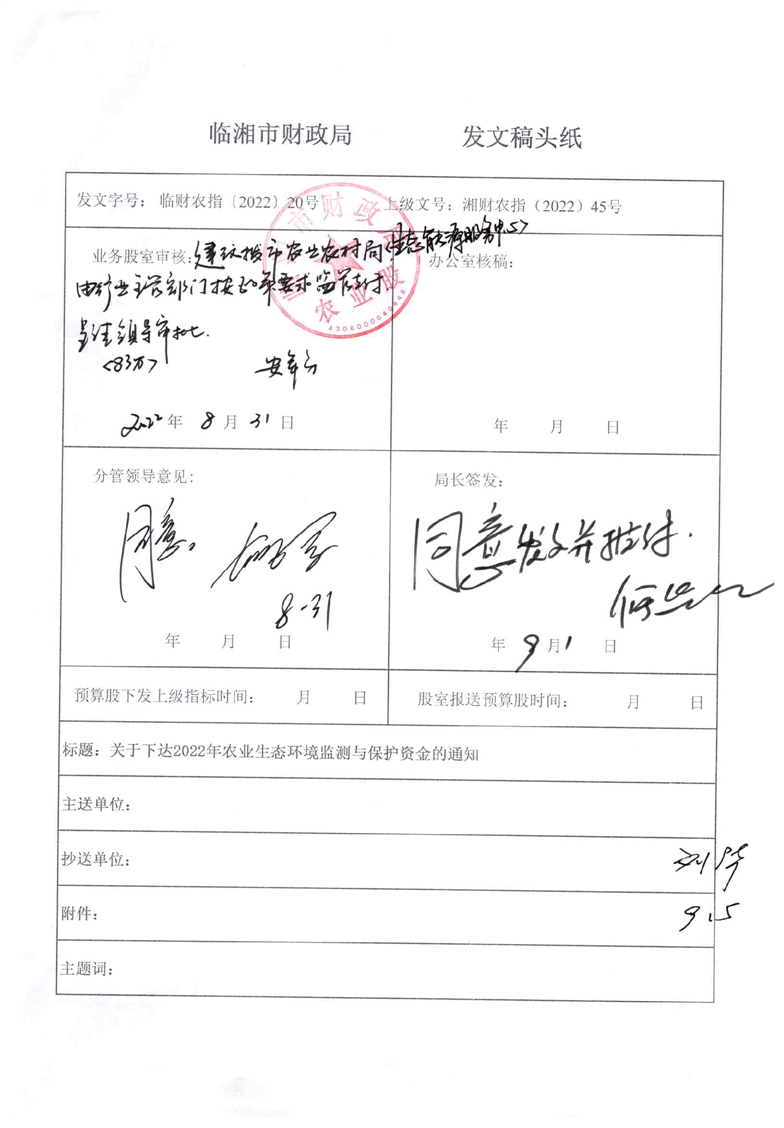 临湘市财政局 发文稿头纸
发文字号： 临财农指〔2022〕20号 上级文号：湘财农指（2022）45号
业务股室审核：建议拨市农业农村局<生态能源服务中心>
办公室核稿：
由行业主管部门按政策要求监管支付
呈请领导审批.
<83万>
2022年 8月 31日
年 月 日
市财政
农业股
4306000040445
分管领导意见:
局长签发：
同意。
同意发文并拨付.
8-31
年 月 日
年 9月1 日
预算股下发上级指标时间： 月 日
股室报送预算股时间： 月 日
标题：关于下达2022年农业生态环境监测与保护资金的通知
主送单位：
抄送单位：
刘华
附件：
9.5
主题词：